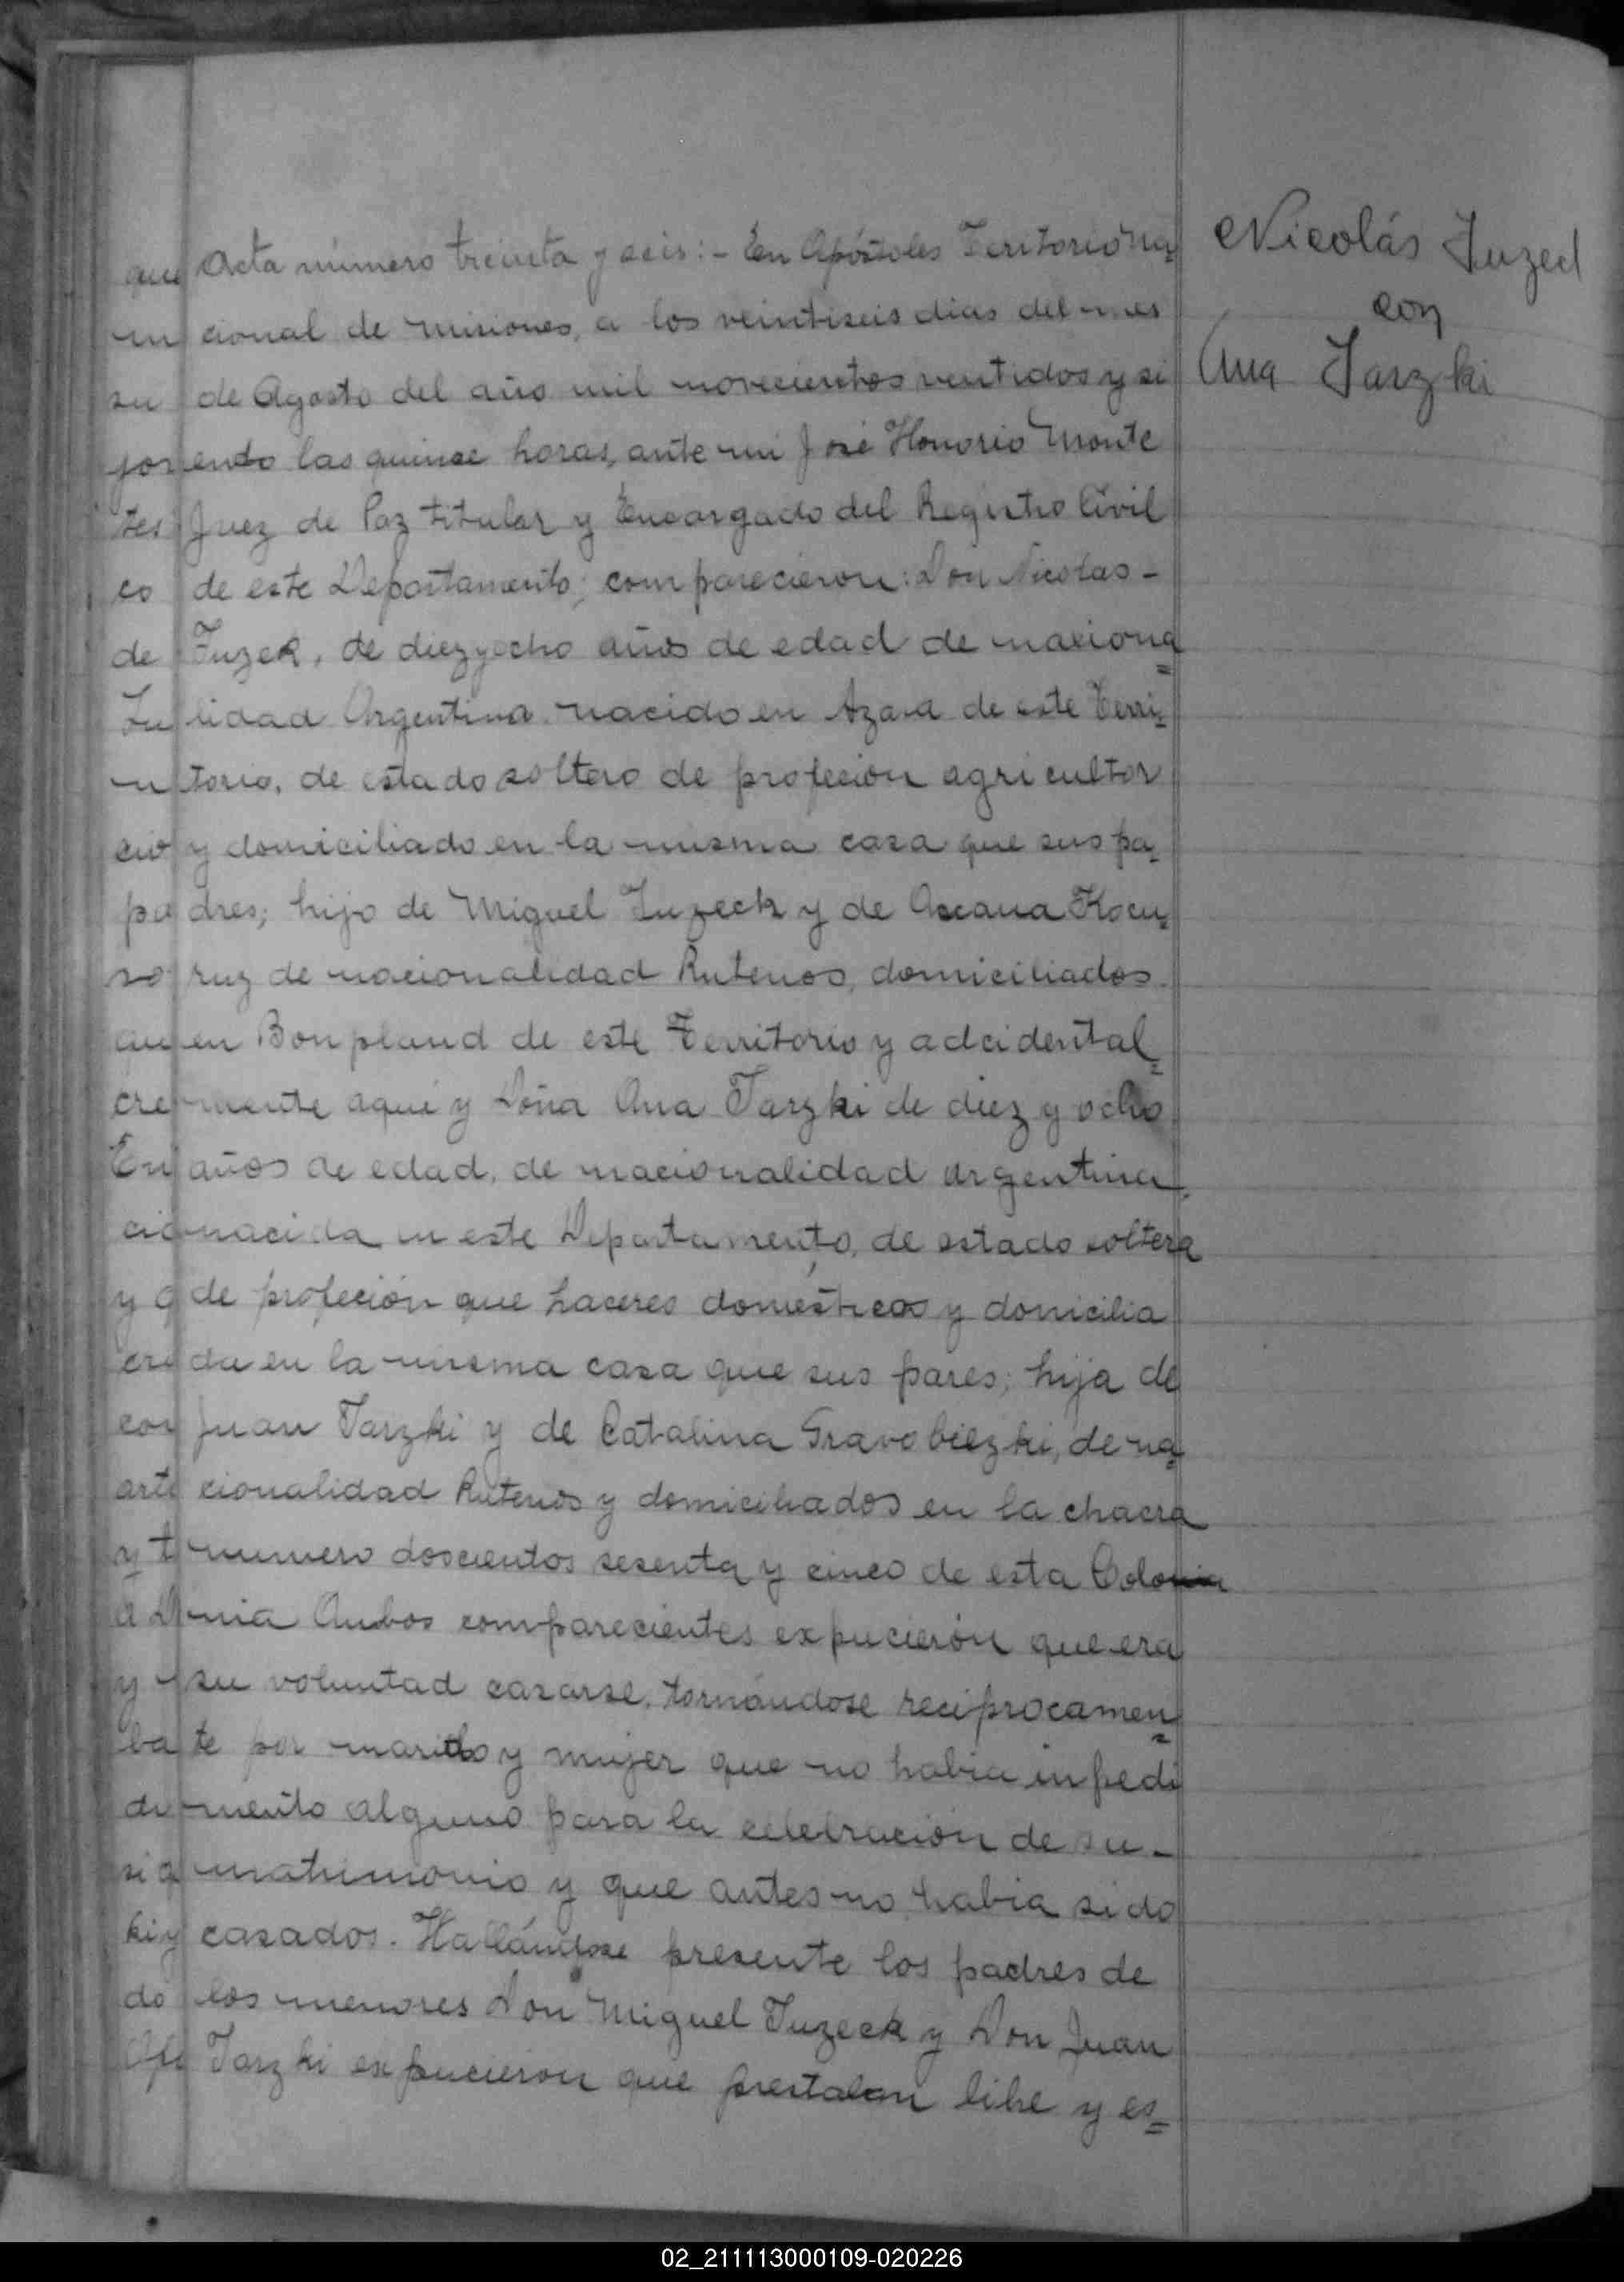 Nicolás Tuzed
con
Ana Tarzki
Acta número treinta y seis:- En Apóstoles Territorio Na
cional de Misiones, a los veintiseis dias del mes
de Agosto del año mil novecientos ventidos y si
endo las quince horas, ante mi José Honorio Monte
Juez de Paz titular y Encargado del Registro Civil
de este Departamento; comparecieron: Don Nicolas -
Tuzek, de diez y ocho años de edad de naciona
lidad Argentina nacido en Azara de este Terri-
torio, de estado soltero de profeción agricultor
y domiciliado en la misma casa que sus pa-
dres; hijo de Miguel Tuzeck y de Axcana Kocu-
ruz de nacionalidad Rutenos, domiciliados
en Bonpland de este Territorio y adcidental-
mente aqui y Doña Ana Tarzki de diez y ocho
años de edad, de nacionalidad argentina,
nacida en este Departamento, de estado soltera
de profeción que haceres domésticos y domicilia
da en la misma casa que sus pares; hija de
Juan Tarzki y de Catalina Gravobiezki, de na-
cionalidad Rutenos y domiciliados en la chacra
numero doscientos sesenta y cinco de esta Colonia
nia Ambos comparecientes expucierón que era
su voluntad casarse, tornándose reciprocamen-
te por marido y mujer que no habia inpedi
mento alguno para la celebración de su -
matrimonio y que antes no habia sido
casados. Hallándose presente los padres de
los menores Don Miguel Tuzeck y Don Juan
Tarzki expucieron que prestaban libre y es-
que
un
su
tes
co
de
Tu
cio
pa
so
que
cre
En
cio
cre
con
arti
ba
ki y
do
02_211113000109-020226